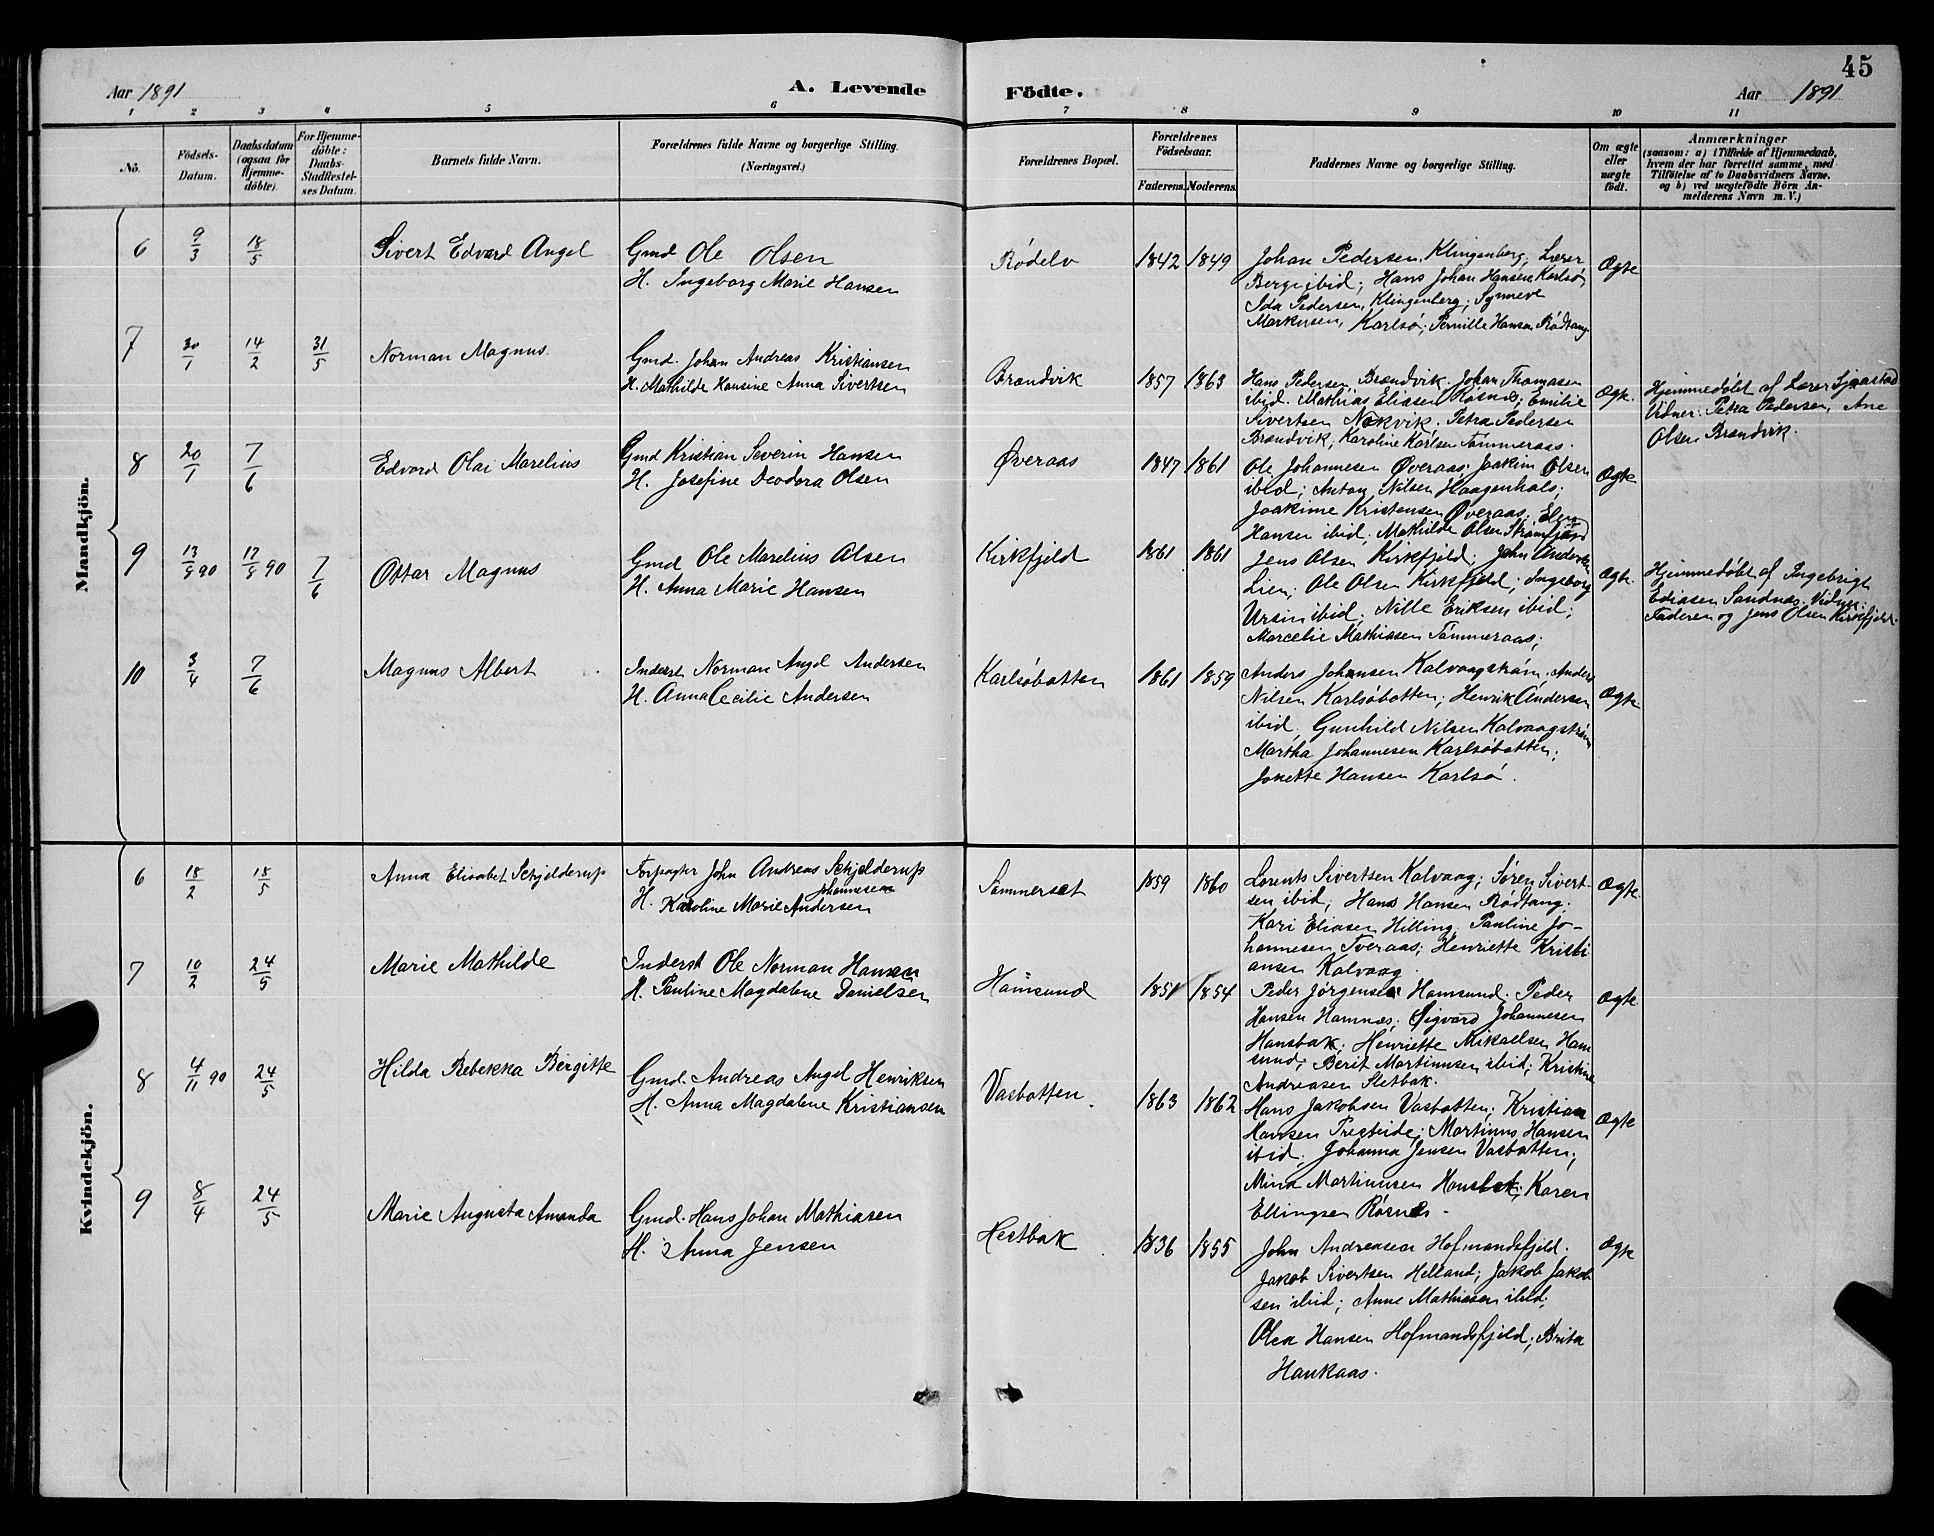 45
Aar 1891
A. Levende Födte.
Aar 1891
1 2 3 4 5 6 7 8 9 10 11
No.
Födsels-Datum.
Daabsdatum (ogsaa for Hjemmedöbte).
For Hjemmedöbte: Daabs-Stadfæstelses Datum.
Barnets fulde Navn.
Forældrenes fulde Navne og borgerlige Stilling.
(Næringsvei.)
Forældrenes Bopæl.
Forældrenes Födselsaar.
Faderens. Moderens.
Faddernes Navne og borgerlige Stilling.
Om ægte eller uægte födt.
Anmærkninger
(saasom: a) i Tilfælde af Hjemmedaab,
hvem der har forrettet samme, med
Tilföielse af to Daabsvidners Navne,
og b) ved uægtefödte Börn An-
melderens Navn m. V.)
Mandkjön.
6 9/3 18/5 Sivert Edvard Angel
Gmd Ole Olsen
H. Ingeborg Marie Hansen
Rødelv 1842 1849
Johan Pedersen, Klingenberg; Lærer
Berg ibid; Hans Johan Hansen Karlsø
Ida Pedersen, Klingenberg; Synneve
Markusen, Karlsø; Pernille Hansen Rødtang.
Ægte
7 30/1 14/2 31/5 Norman Magnus.
Gmd. Johan Andreas Kristiansen
H. Mathilde Hansine Anna Sivertsen
Brændvik 1857 1863
Hans Pedersen, Brændvik. Johan Thomasen
ibid. Mathias Eliasen Røsnes; Emilie
Sivertsen Nøkvik. Petra Pedersen
Brændvik, Karoline Karlsen Tømmeraas.
Ægte.
Hjemmedøbt af Lærer Sjaastad
Vidner: Petra Pedersen, Ane
Olsen Brændvik.
8 20/1 7/6 Edvard Olai Marelius
Gmd Kristian Severin Hansen
H. Josefine Deodora Olsen
Øveraas 1847 1861
Ole Johannesen Øveraas; Joakim Olsen
ibid; Anton Nilsen Haagenhals;
Joakime Kristensen Øveraas; Elen
Hansen ibid; Mathilde Olsen Strømfjord
Ægte
9 13/5 90 17/5 90 7/6 Ottar Magnus
Gmd Ole Marelius Olsen
H. Anna Marie Hansen
Kirkfjeld 1861 1861
Jens Olsen Kirkfjeld; John Andersen
Lien; Ole Olsen Kirkfjeld; Ingeborg
Ursin ibid; Nille Eriksen ibid;
Marcelie Mathiasen Tømmeraas;
Ægte.
Hjemmedøbt af Ingebrigt
Ediasen Sandnæs. Vidner:
Faderen og Jens Olsen Kirkfjeld.
10 3/4 7/6 Magnus Albert
Inderst Norman Angel Andersen
H. Anna Cecilie Andersen
Karlsøbotten 1861 1859
Anders Johansen Kalvaagstrøm; Anders
Nilsen Karlsøbotten; Henrik Andersen
ibid, Gunhild Nilsen Kalvaagstrøm
Martha Johannesen Karlsøbotten;
Jonette Hansen Karlsø.
Ægte.
Kvindekjön.
6 18/2 18/5 Anna Elisabet Schjelderup
Forpagter John Andreas Schjelderup
Johannesen
H. Karoline Marie Andersen
Sommerset 1859 1860
Lorents Sivertsen Kalvaag; Søren Sivert-
sen ibid; Hans Hansen Rødtang.
Kari Eliasen Hilling. Pauline Jo-
hannesen Tveraas; Henriette Kristi
ansen Kalvaag.
Ægte.
7 10/2 24/5 Marie Mathilde
Inderst Ole Norman Hansen
H. Pauline Magdalene Danielsen
Hamsund 1851 1854
Peder Jørgensen Hamsund; Peder
Hansen Hamnæs; Sigvard Johannesen
Hansbak; Henriette Mikaelsen Ham
sund; Berit Martinusen ibid; Kristine
Andreasen Sletbak.
Ægte
8 4/11 90 24/5 Hilda Rebekka Bergitte
Gmd. Andreas Angel Henriksen
H. Anna Magdalene Kristiansen
Vasbotten. 1863 1862
Hans Jakobsen Vasbotten; Kristian
Hansen Presteide; Martinus Hansen
ibid; Johanna Jensen Vasbotten;
Mina Martinusen Hansbak; Karen
Ellingsen Røsnes.
Ægte
9 8/4 24/5 Marie Augusta Amanda
Gmd. Hans Johan Mathiasen
H. Anna Jensen
Hestbak 1836 1855
John Andreasen Hofmandsfjeld.
Jakob Sivertsen Helland; Jakob Jakob
sen ibid; Anne Mathiasen ibid;
Olea Hansen Hofmandsfjeld; Brita
Haukaas.
Ægte